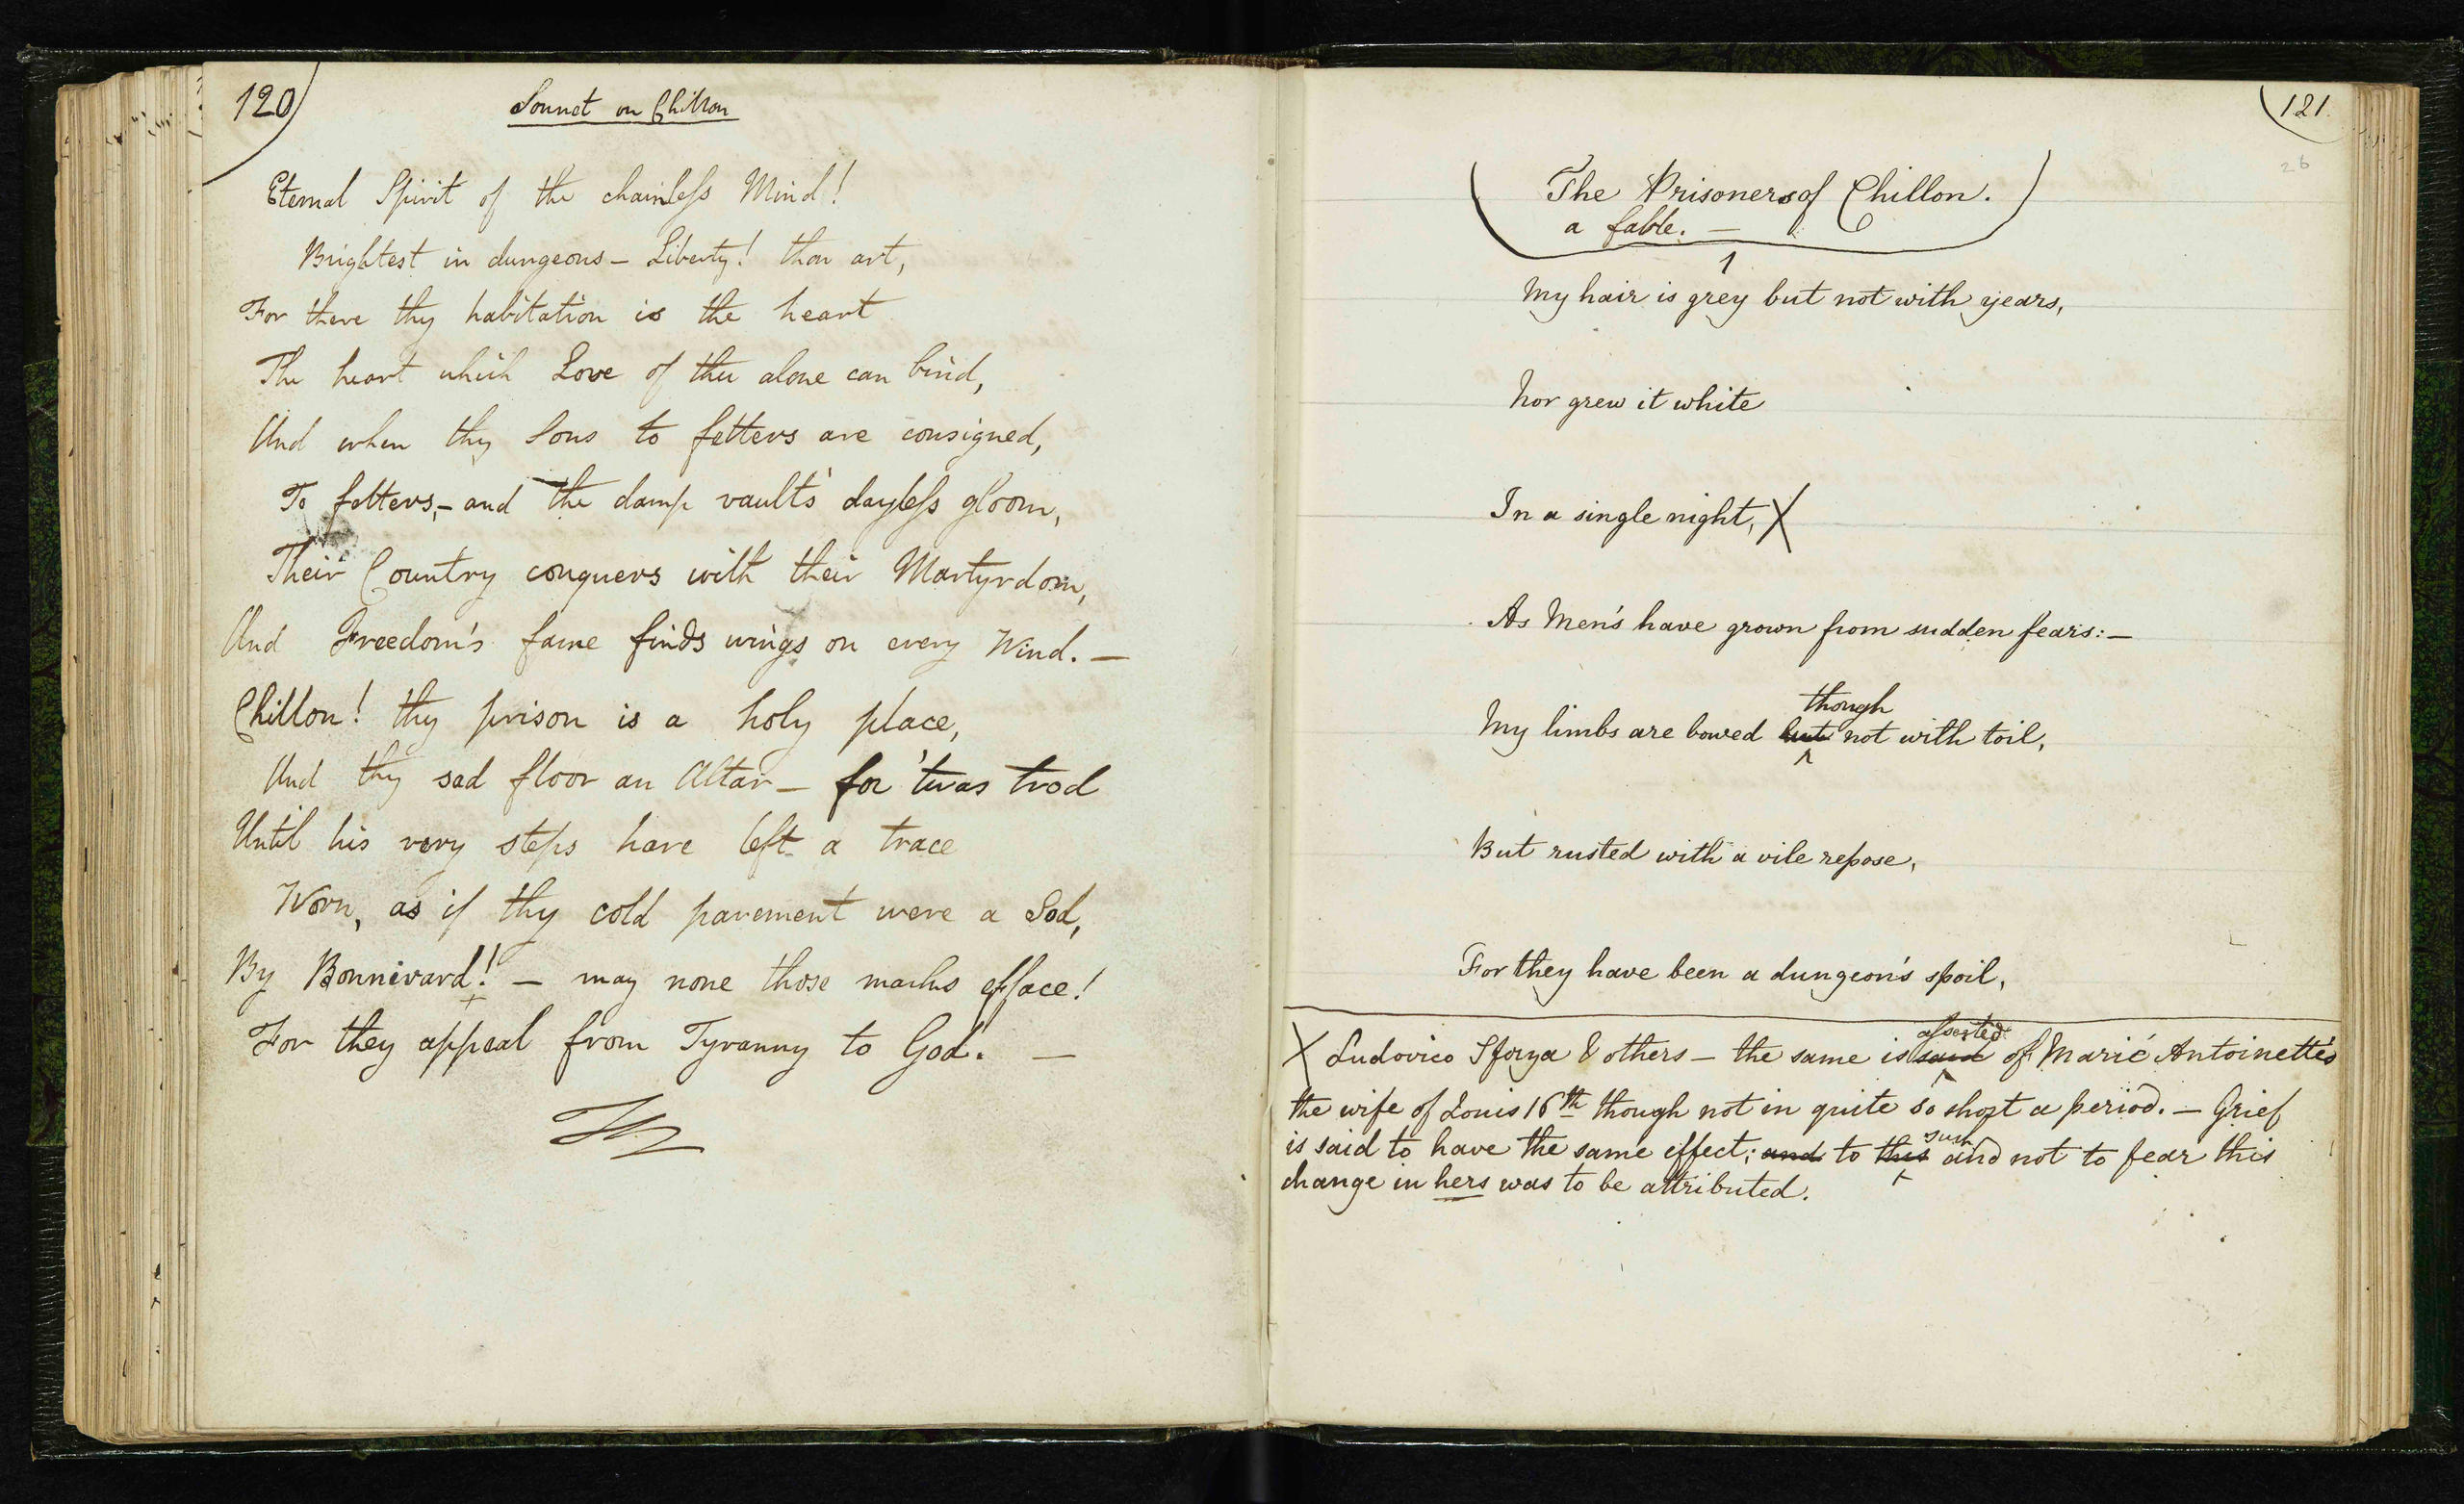 120
Sonnet on Chillon
Eternal Spirit of the chainless Mind!
Brightest in dungeons – Liberty! thou art,
For there thy habitation is the heart
The heart which Love of thee alone can bind,
And when thy Sons to fetters are consigned,
To fetters, – and the damp vault's dayless gloom,
Their Country conquers with their Martyrdom,
And Freedom's fame finds wings on every Wind. –
Chillon! thy prison is a holy place,
And thy sad floor an Altar – for 'twas trod
Until his very steps have left a trace
Worn, as if thy cold pavement were a Sod,
By Bonnivard! – may none those marks efface!
+
For they appeal from Tyranny to God. –
121.
26
The Prisoners of Chillon.
a fable. –
1
My hair is grey but not with years,
Nor grew it white
In a single night, X
As Men's have grown from sudden fears: –
though
My limbs are bowed but not with toil,
But rusted with a vile repose,
For they have been a dungeon's spoil,
asserted
X Ludovico Sforza & others – the same is said of Marie Antoinette's
the wife of Louis 16th though not in quite so short a period. – Grief
such
is said to have the same effect; and to this and not to fear this
change in hers was to be attributed.